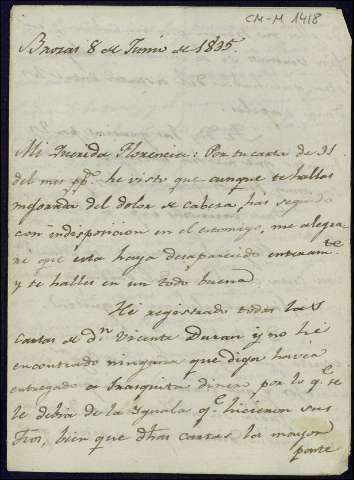 CM-M 1418
Brozas 8 de Junio de 1835.
Mi Querida Florencia: Por tu carta de 31
del mes pp.º he visto que aunque te hallas
mejorada del dolor de cabeza, has seguido
con indisposicion en el estomago, me alegra-
ré que esta haya desaparecido enteramte
y te halles en un todo buena
He registrado todas las
Cartas de dn Vicente Duran y no he
encontrado ninguna que diga havia
entregado a Frasquita dinero por lo qe
le debia de la Yguala qe hicieron sus
Tios, bien que dhas cartas la mayor
parte